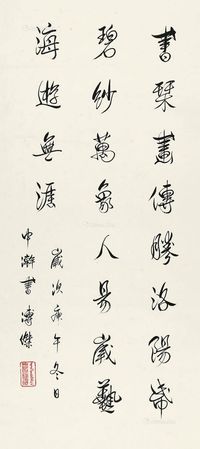 書琹畫傳勝洛陽帋
碧紗萬象人易歲藝
海遊無涯
歲次庚午冬日
中澣書溥傑